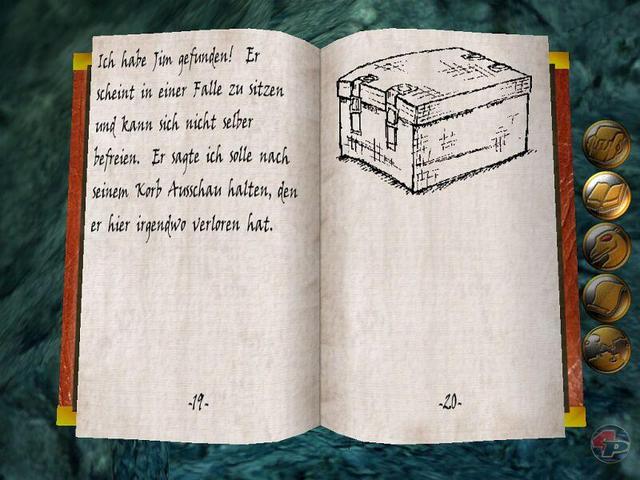 Ich habe Jim gefunden! Er
scheint in einer Falle zu sitzen
und kann sich nicht selber
befreien. Er sagte ich solle nach
seinem Korb Ausschau halten, den
er hier irgendwo verloren hat.
-19-
-20-
4P